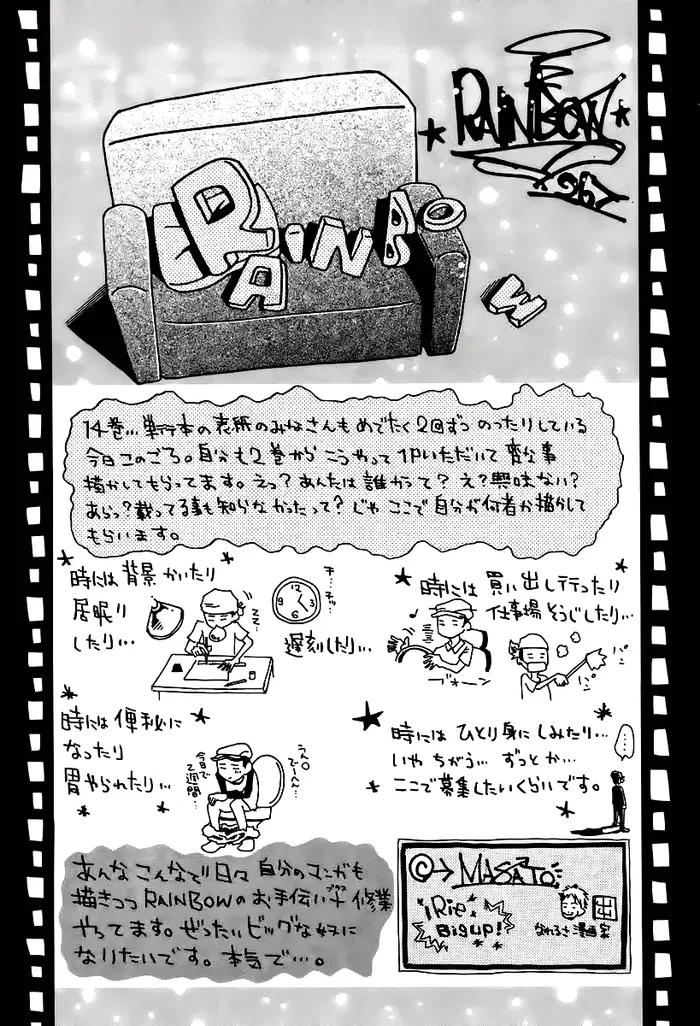 RAINBOW
267
RAINBOW
14巻… 単行本の表所のみなさんもめでたく2回ずつ のったりしている
今日このごろ。自分も2巻から こうやって 1Pいただいて 変な事
描かしてもらってます。えっ? あんたは誰かって? え?興味ない?
あらっ?載ってる事も知らなかったって? じゃ ここで自分が何者か描かして
もらいます。
時には 背景 かいたり
居眠り
したり…
ZZZ…
チッ…チッ…
遅刻したり…
時には 買い出し行ったり
仕事場 そうじしたり…
ブォーン
パン パン
時には 便秘に
なったり
胃やられたり…
今日で2週間…
うん〇
でーへん…
時には ひとり身に しみたり…
いや ちがう… ずっとか…
ここで募集したいくらいです。
あんな こんなで 日々 自分のマンガも
描きつつ RAINBOWの お手伝い 修業
やってます。ぜったい ビッグな奴に
なりたいです。本気で…。
@→ MASATO
iRie
Big up!
漫画家